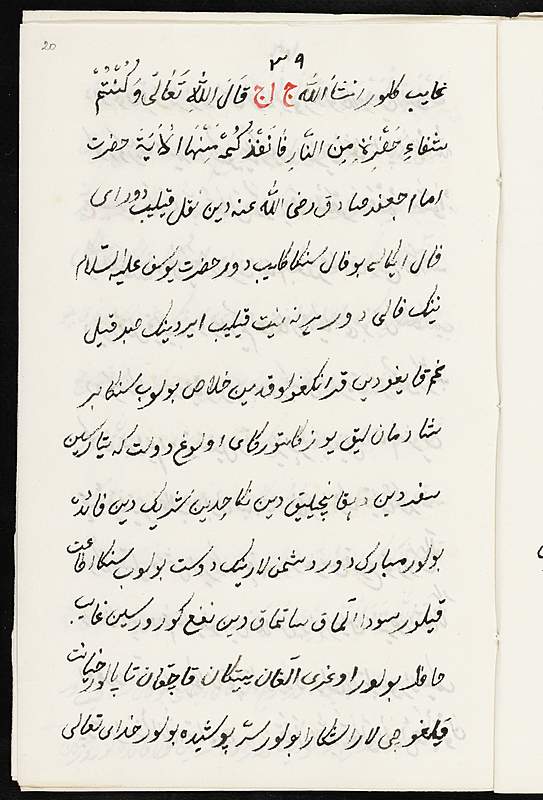 20
٣٩
غایب کلور انشأ الله ج ا ج قَالَ اللهُ تَعَالَى وَكُنْتُمْ
شفاءِ حَفْرَةٍ مِنَ النَّارِ فَأَنْقَذَكُمْ مِنْهَا الْأَيَة حضرت
امام جعفر صادق رضی الله عنه دین نقل قیلیب دورای
فال ایکاسی بو فال سنکا کلیب دور حضرت یوسف علیه السلام
نینک فالی دور هر نه نیت قیلیب ایردینک صبر قیل
غم قایغو دین قرانکغولوقدین خلاص بولوب سنکا بر
شادمان لیق یوز کلتورکای اولوغ دولت که یتارسین
سفر دین دهقانچیلیق دین نکاحدین شریک دین فائده
بولور مبارک دور دشمن لارینک دوست بولوب سنکا اطاعت
قیلور سودا آلماق ساتماق دین نفع کورورسین غایب
حاظر بولور اوغری آلغان ییتکان قاچقان تاپالور خیانت
قیلغوچی لار اشکارا بولور ستر پوشیده بولور خدای تعالی